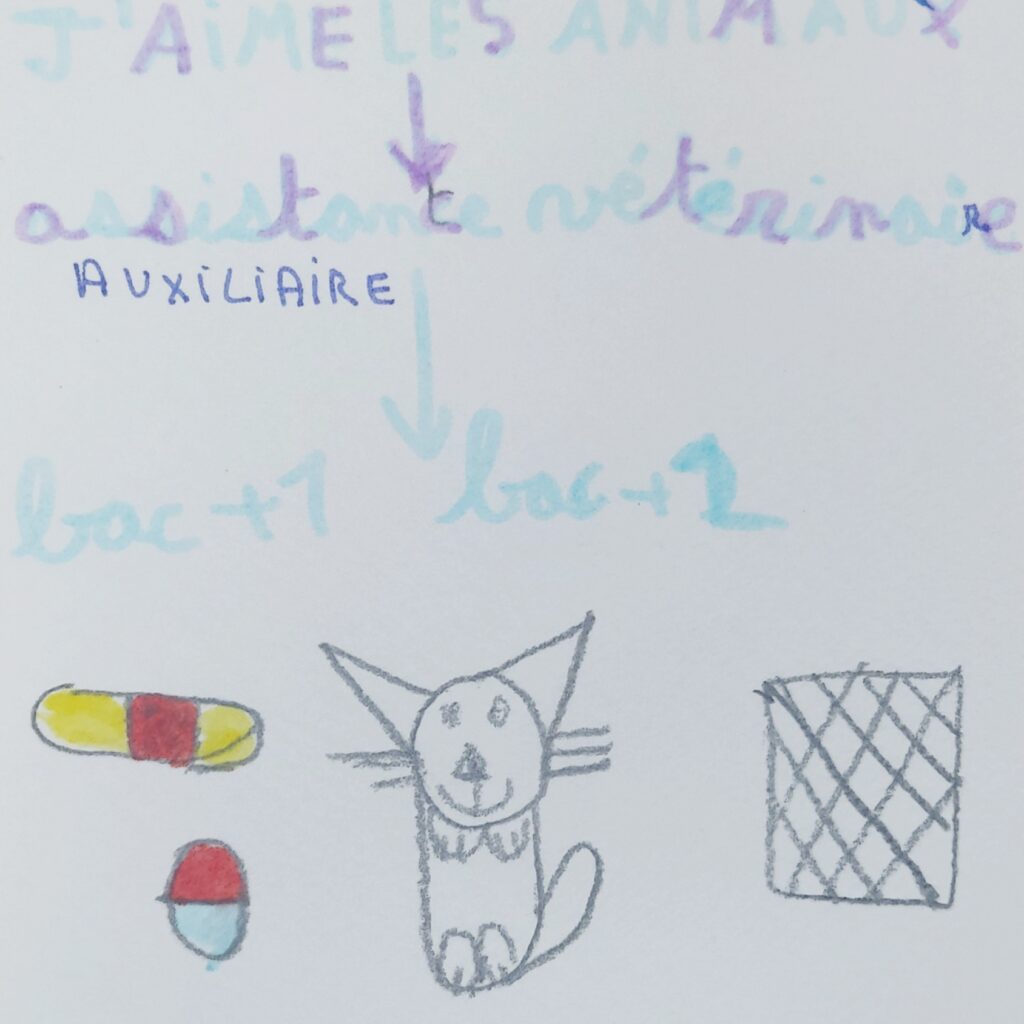 J'AiME LES ANIMAUX
assistante vétérinaire
AUXiLiAiRE
bac +1 bac +2